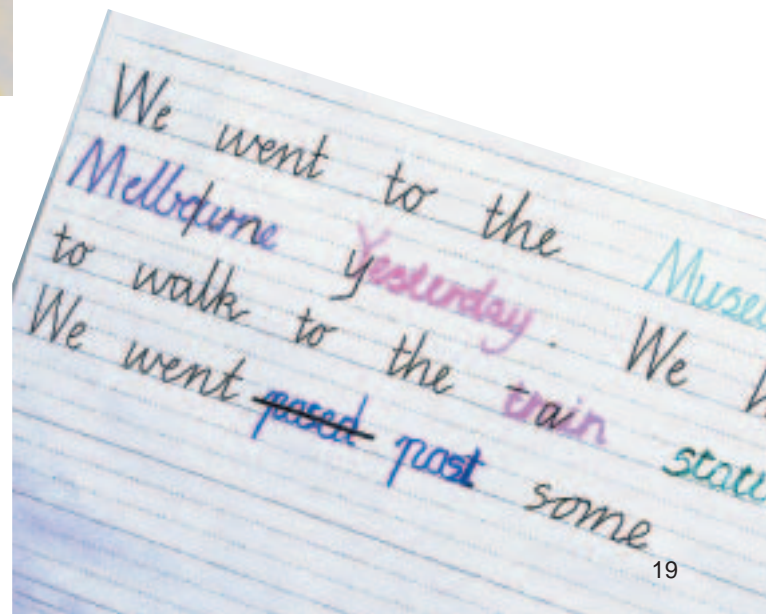 We went to the
Melbourne yesterday. We
to walk to the train
We went posed past some
19